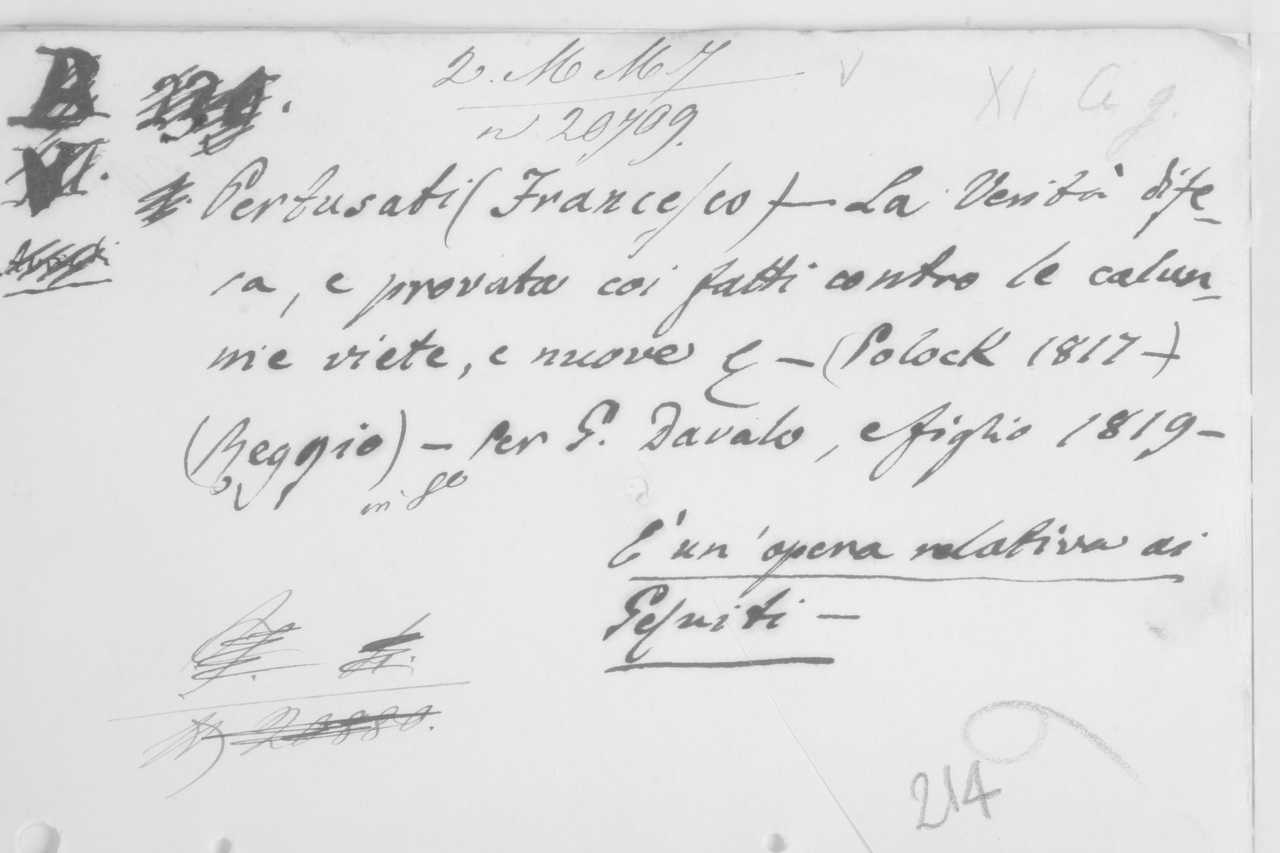 B
2. M M 7
n 20709.
XI
Pertusati (Francesco) — La Verità dife-
sa, e provata coi fatti contro le calun-
nie viete, e nuove — (Polock 1817 —)
(Reggio) — Per G. Davolo, e figlio 1819 —
in 8º
E' un' opera relativa ai
Gesuiti —
N 20880.
214